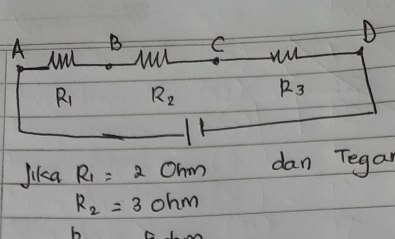 A B C D
R₁ R₂ R₃
Jika R₁ = 2 Ohm dan
R₂ = 3 ohm